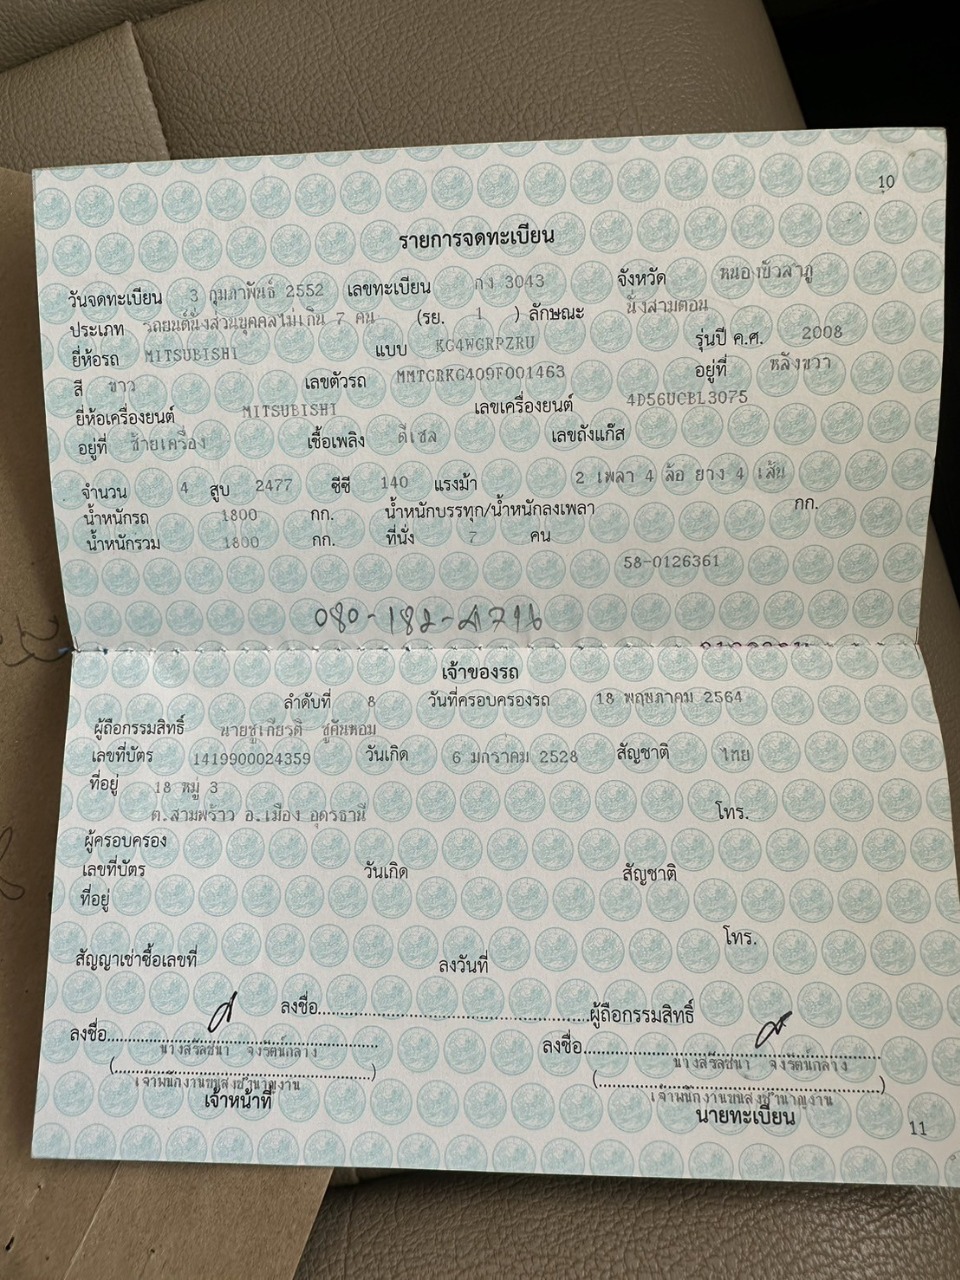 10
รายการจดทะเบียน
วันจดทะเบียน 3 กุมภาพันธ์ 2552 เลขทะเบียน กง 3043 จังหวัด หนองบัวลำภู
ประเภท รถยนต์นั่งส่วนบุคคลไม่เกิน 7 คน (รย. 1 ) ลักษณะ นั่งสามตอน
ยี่ห้อรถ MITSUBISHI แบบ KG4WGRPZRU รุ่นปี ค.ศ. 2008
สี ขาว เลขตัวรถ MMTGRKG409F001463 อยู่ที่ หลังขวา
ยี่ห้อเครื่องยนต์ MITSUBISHI เลขเครื่องยนต์ 4D56UCBL3075
อยู่ที่ ซ้ายเครื่อง เชื้อเพลิง ดีเซล เลขถังแก๊ส
จำนวน 4 สูบ 2477 ซีซี 140 แรงม้า 2 เพลา 4 ล้อ ยาง 4 เส้น
น้ำหนักรถ 1800 กก. น้ำหนักบรรทุก/น้ำหนักลงเพลา กก.
น้ำหนักรวม 1800 กก. ที่นั่ง 7 คน
58-0126361
080-182-4716
เจ้าของรถ
ลำดับที่ 8 วันที่ครอบครองรถ 18 พฤษภาคม 2564
ผู้ถือกรรมสิทธิ์ นายชูเกียรติ ชูคันหอม
เลขที่บัตร 1419900024359 วันเกิด 6 มกราคม 2528 สัญชาติ ไทย
ที่อยู่ 18 หมู่ 3
ต.สามพร้าว อ.เมือง อุดรธานี โทร.
ผู้ครอบครอง
เลขที่บัตร วันเกิด สัญชาติ
ที่อยู่
โทร.
สัญญาเช่าซื้อเลขที่ ลงวันที่
ลงชื่อ ผู้ถือกรรมสิทธิ์
ลงชื่อ ลงชื่อ
นางสรัลชนา จงรัตน์กลาง นางสรัลชนา จงรัตน์กลาง
เจ้าพนักงานขนส่งชำนาญงาน เจ้าพนักงานขนส่งชำนาญงาน
เจ้าหน้าที่ นายทะเบียน
11